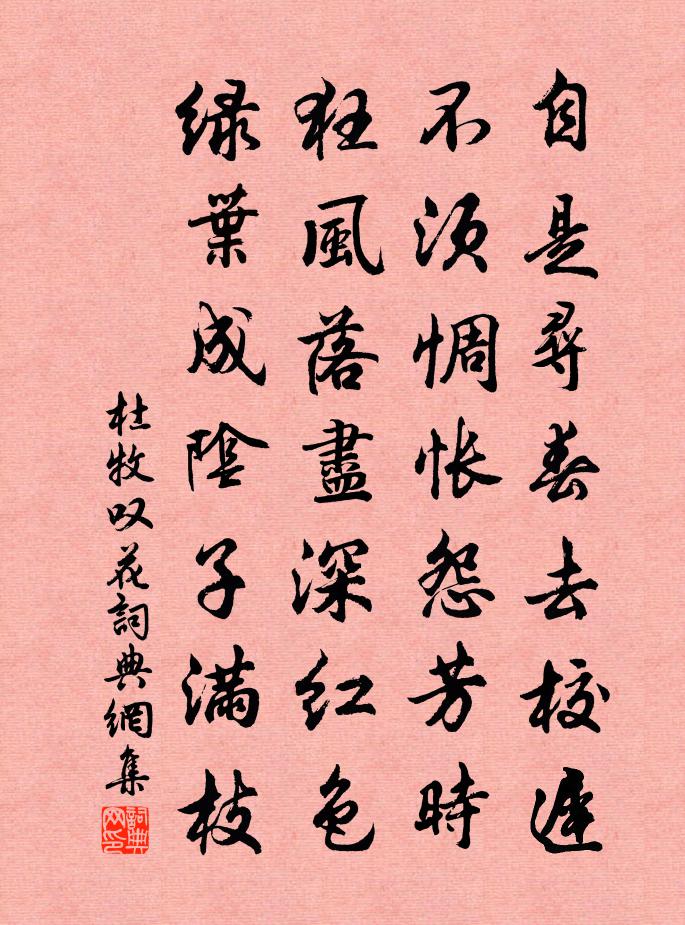 自是尋春去校遲
不須惆悵怨芳時
狂風落盡深紅色
綠葉成陰子滿枝
杜牧叹花詞典網集
詞典网印